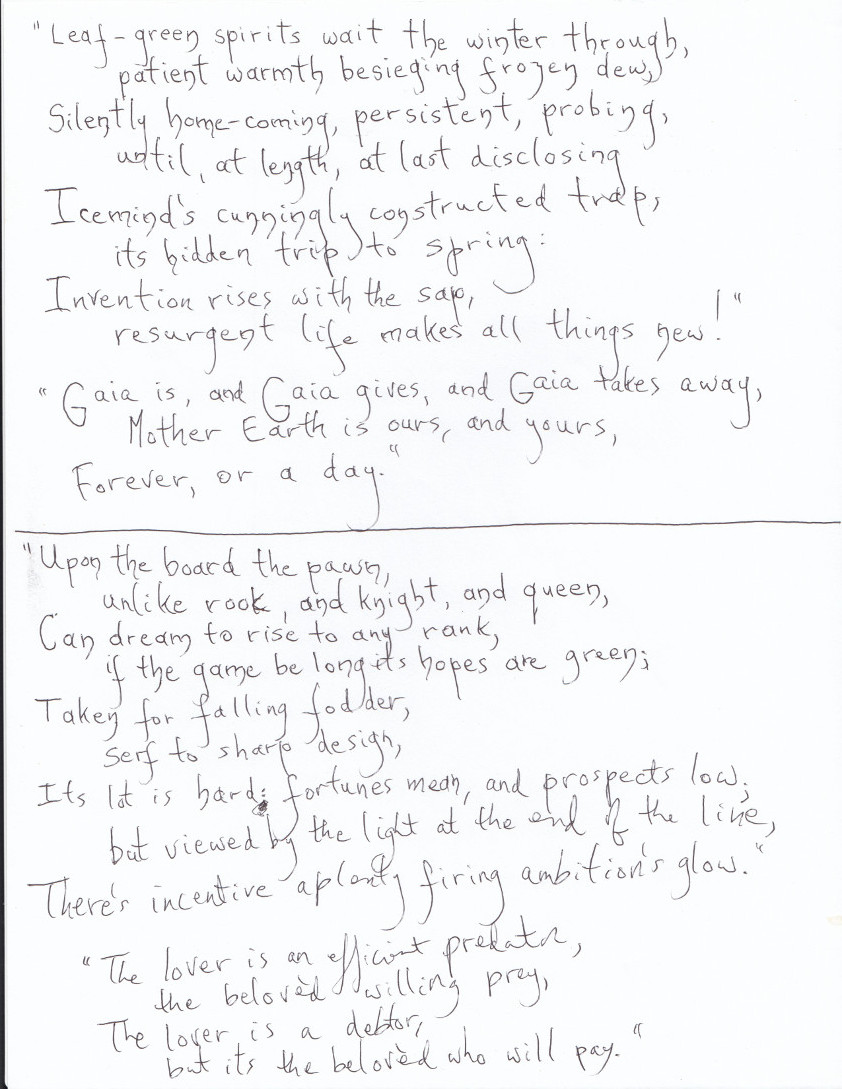 "Leaf-green spirits wait the winter through,
patient warmth besieging frozen dew,
Silently home-coming, persistent, probing,
until, at length, at last disclosing
Icemind's cunningly constructed trap,
its hidden trip to spring:
Invention rises with the sap,
resurgent life makes all things new!"
"Gaia is, and Gaia gives, and Gaia takes away,
Mother Earth is ours, and yours,
Forever, or a day."
"Upon the board the pawn,
unlike rook, and knight, and queen,
Can dream to rise to any rank,
if the game be long its hopes are green;
Taken for falling fodder,
serf to sharp design,
Its lot is hard: fortunes mean, and prospects low;
but viewed by the light at the end of the line,
There's incentive aplenty firing ambition's glow."
"The lover is an efficient predator,
the belovèd willing prey,
The lover is a debtor,
but its the belovèd who will pay."